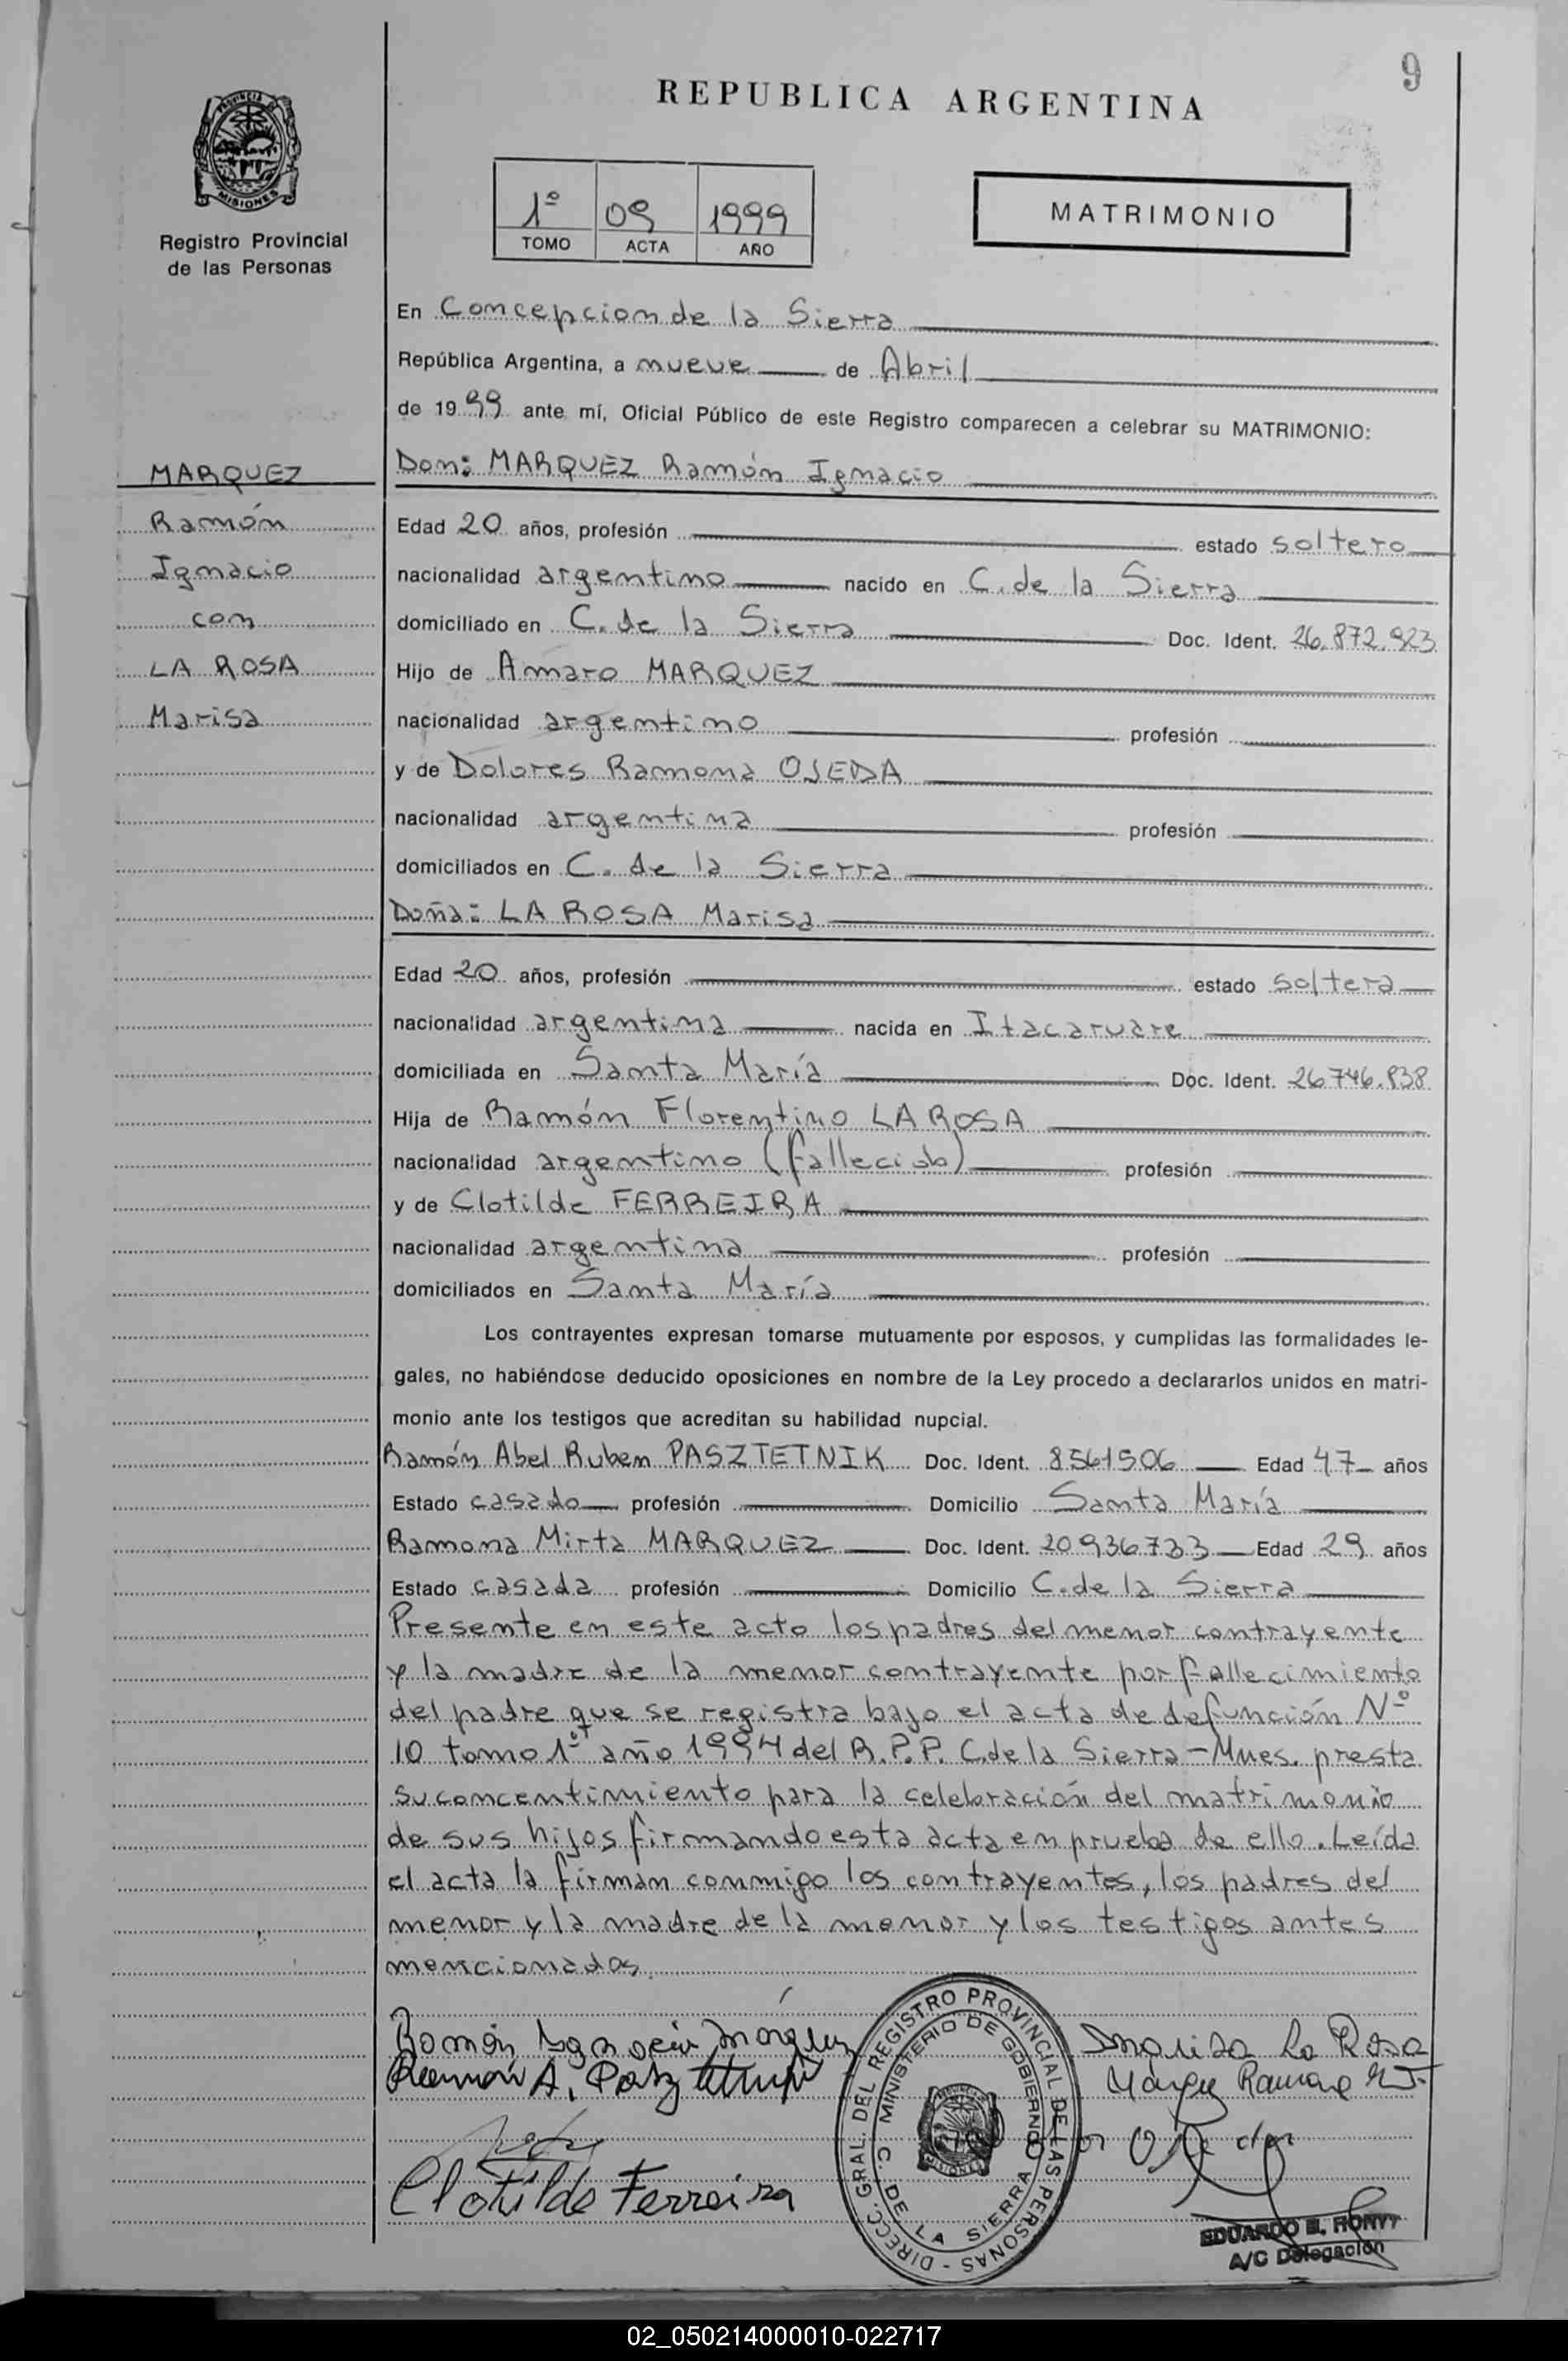 9
REPUBLICA ARGENTINA
PROVINCIA DE
MISIONES
Registro Provincial
de las Personas
1º 09 1999
TOMO ACTA AÑO
MATRIMONIO
En Concepcion de la Sierra
República Argentina, a nueve de Abril
de 1999 ante mí, Oficial Público de este Registro comparecen a celebrar su MATRIMONIO:
MARQUEZ
Ramón
Ignacio
con
LA ROSA
Marisa
Don: MARQUEZ Ramón Ignacio
Edad 20 años, profesión estado soltero
nacionalidad argentino nacido en C. de la Sierra
domiciliado en C. de la Sierra Doc. Ident. 26.872.923
Hijo de Amaro MARQUEZ
nacionalidad argentino profesión
y de Dolores Ramona OJEDA
nacionalidad argentina profesión
domiciliados en C. de la Sierra
Doña: LA ROSA Marisa
Edad 20 años, profesión estado soltera
nacionalidad argentina nacida en Itacaruare
domiciliada en Santa María Doc. Ident. 26.746.838
Hija de Ramón Florentino LA ROSA
nacionalidad argentino (fallecido) profesión
y de Clotilde FERREIRA
nacionalidad argentina profesión
domiciliados en Santa María
Los contrayentes expresan tomarse mutuamente por esposos, y cumplidas las formalidades le-
gales, no habiéndose deducido oposiciones en nombre de la Ley procedo a declararlos unidos en matri-
monio ante los testigos que acreditan su habilidad nupcial.
Ramón Abel Ruben PASZTETNIK Doc. Ident. 8561506 Edad 47 años
Estado casado profesión Domicilio Santa María
Ramona Mirta MARQUEZ Doc. Ident. 20936733 Edad 29 años
Estado casada profesión Domicilio C. de la Sierra
Presente en este acto los padres del menor contrayente
y la madre de la menor contrayente por fallecimiento
del padre que se registra bajo el acta de defunción Nº
10 tomo 1º año 1994 del R.P.P. C. de la Sierra - Mnes. presta
su concentimiento para la celebración del matrimonio
de sus hijos firmando esta acta en prueba de ello. Leída
el acta la firman conmigo los contrayentes, los padres del
menor y la madre de la menor y los testigos antes
mencionados.
Ramón Ignacio Marquez
Marisa La Rosa
Ramón A.
Ramona
Clotilde Ferreira
DIRECC. GRAL. DEL REGISTRO PROVINCIAL DE LAS PERSONAS -
MINISTERIO DE GOBIERNO
C. DE LA SIERRA
MISIONES
EDUARDO E.
A/C Delegación
02_050214000010-022717